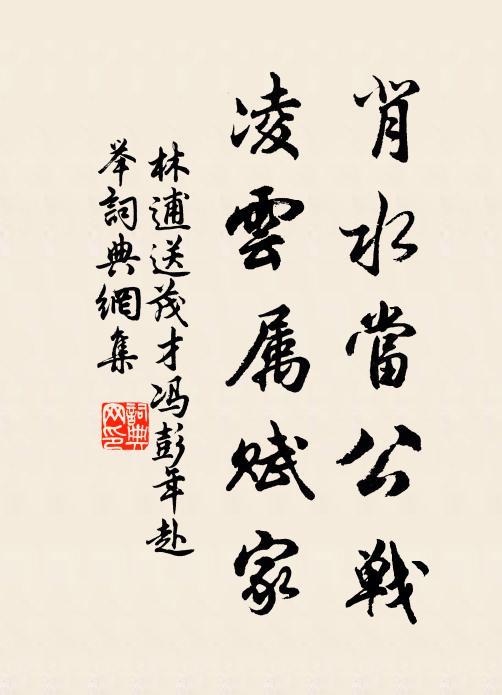 肖水當公戦
凌雲属赋家
林逋送茂才冯彭年赴
举詞典網集
詞典网印